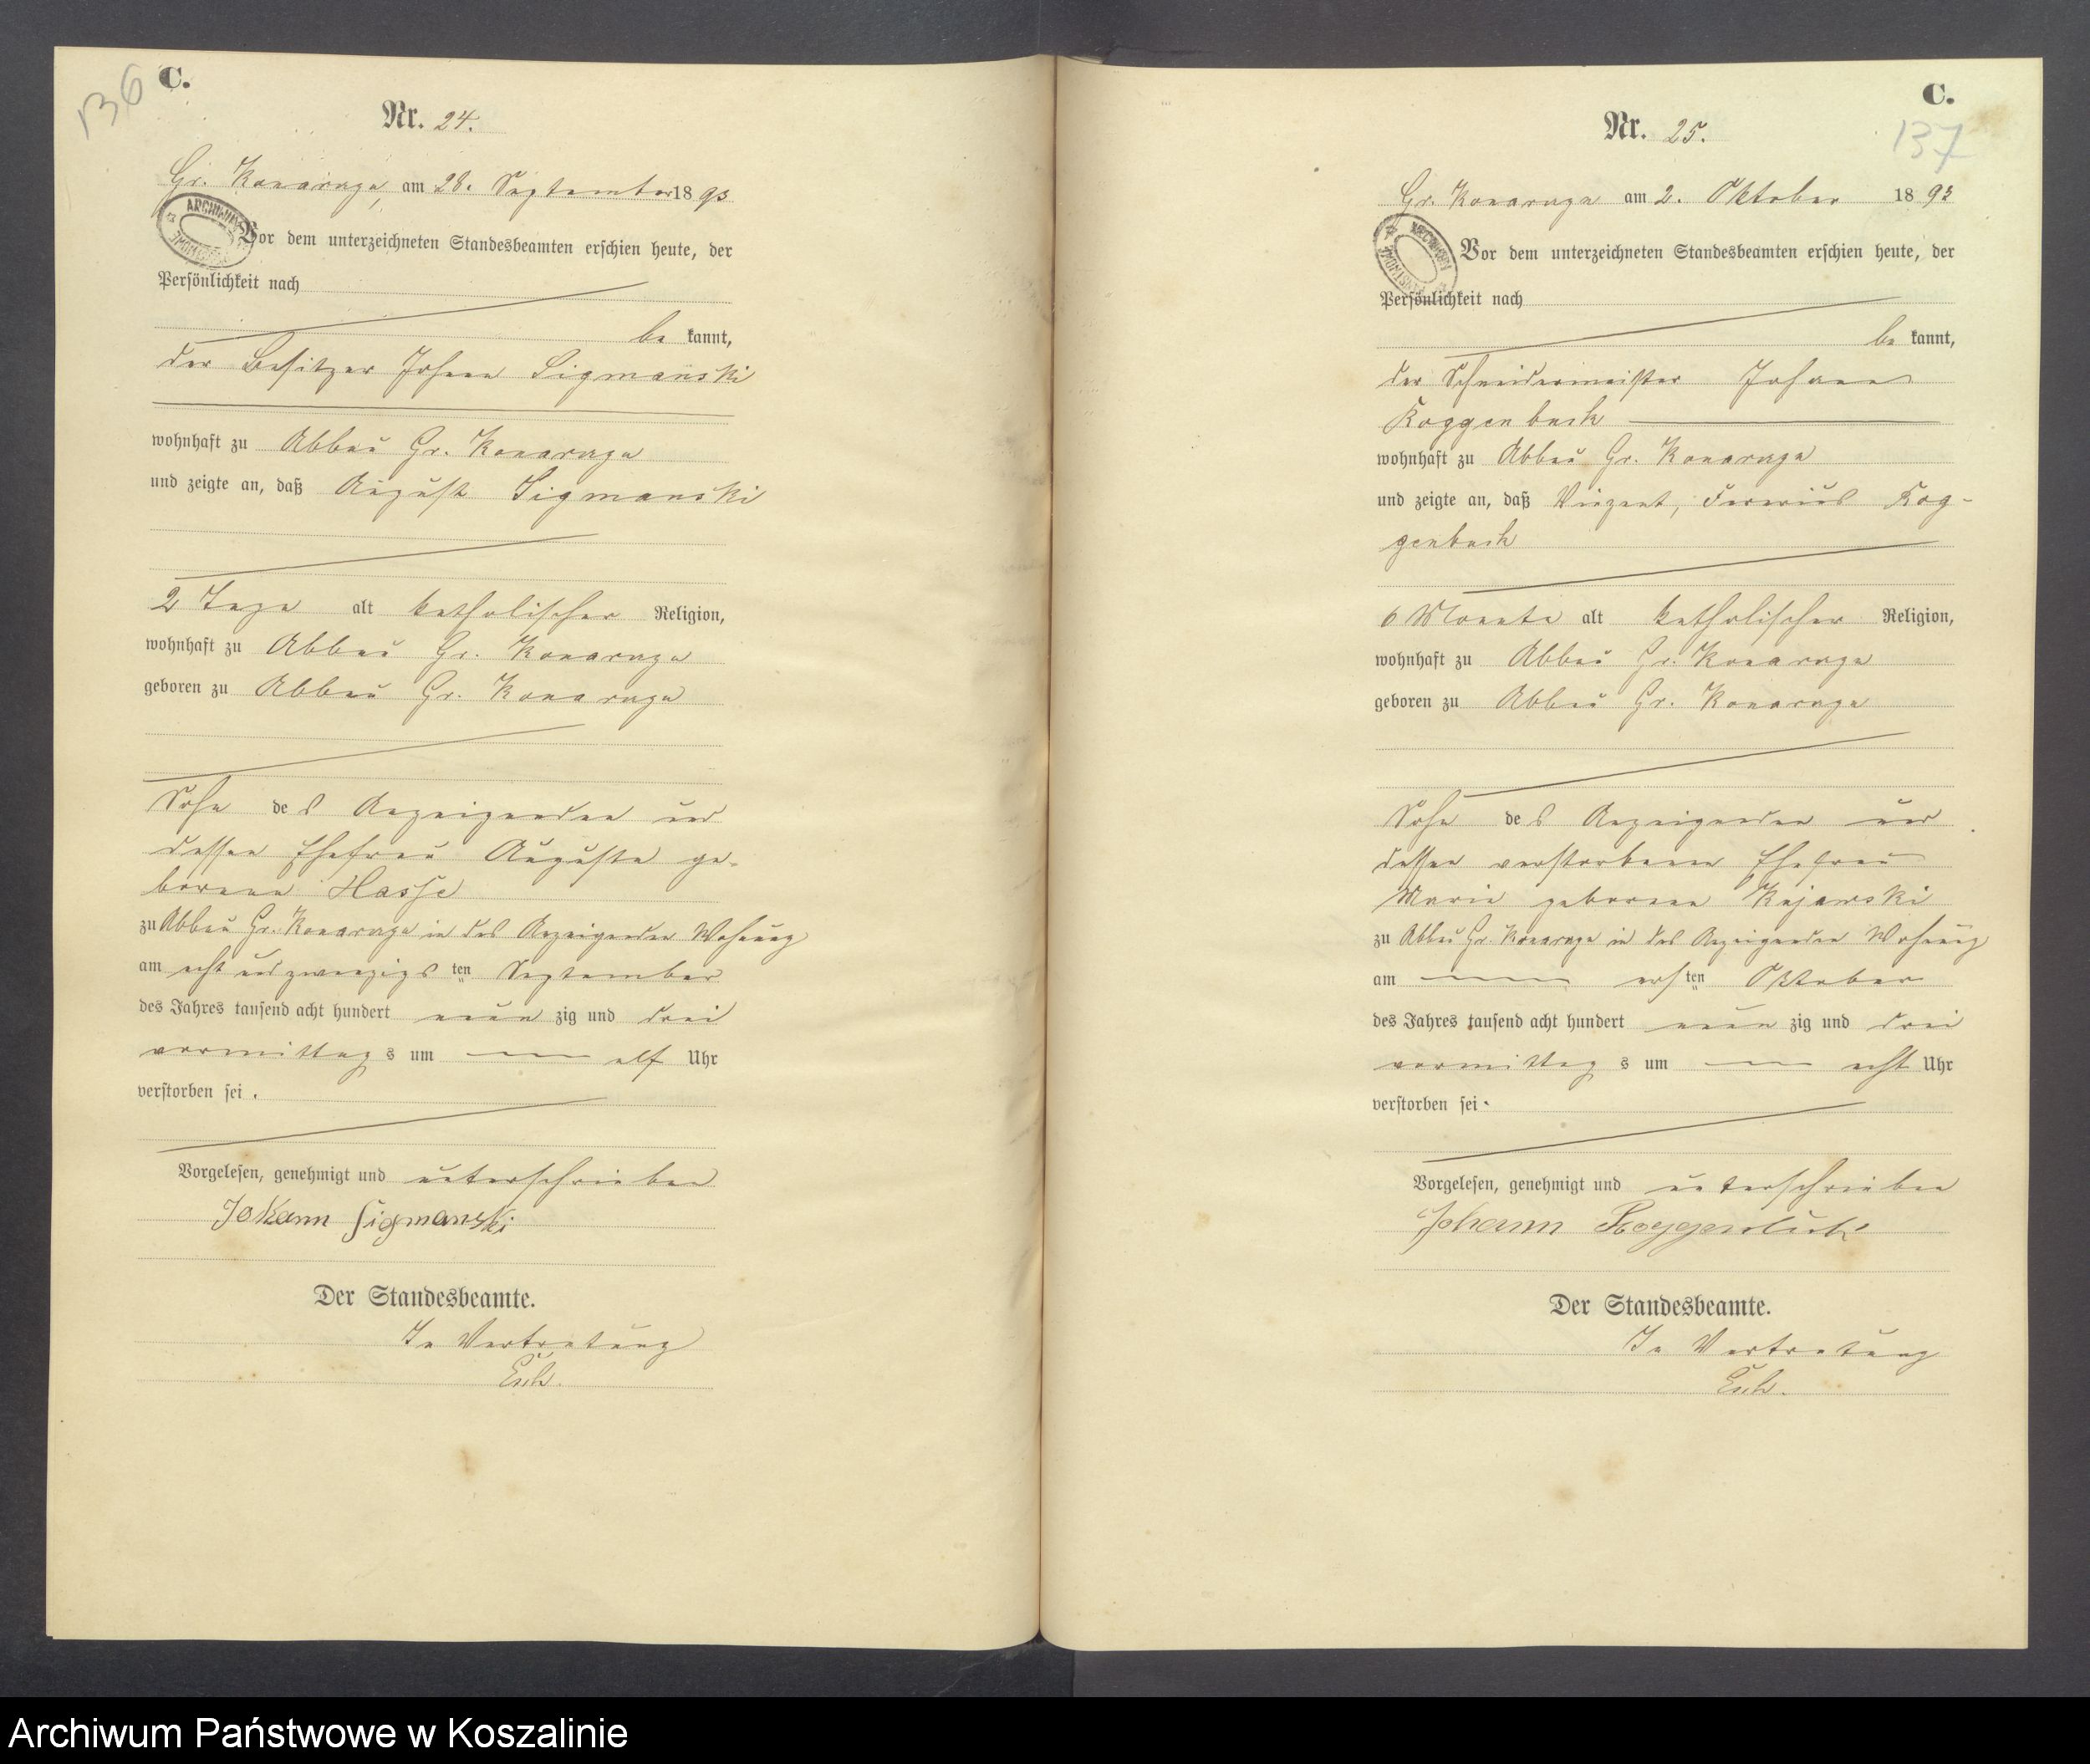 136
C.
Nr. 24.
Gr. Konarzyn, am 28. September 1893
ARCHIWUM
Vor dem unterzeichneten Standesbeamten erschien heute, der
Persönlichkeit nach
be kannt,
der Besitzer Johann Sigmanski
wohnhaft zu Abbau Gr. Konarzyn
und zeigte an, daß August Sigmanski
2 Tage alt katholischer Religion,
wohnhaft zu Abbau Gr. Konarzyn
geboren zu Abbau Gr. Konarzyn
Sohn des Anzeigenden und
dessen Ehefrau Auguste ge-
borene Hasse
zu Abbau Gr. Konarzyn in des Anzeigenden Wohnung
am acht und zwanzigsten September
des Jahres tausend acht hundert neun zig und drei
vormittags um elf Uhr
verstorben sei.
Vorgelesen, genehmigt und unterschrieben
Johann Sigmanski
Der Standesbeamte.
In Vertretung
C.
137
Nr. 25.
Gr. Konarzyn am 2. Oktober 1893
Vor dem unterzeichneten Standesbeamten erschien heute, der
Persönlichkeit nach
be kannt,
der Schneidermeister Johann
Roggenbuck
wohnhaft zu Abbau Gr. Konarzyn
und zeigte an, daß Vinzent, Rog-
genbuck
6 Monate alt katholischer Religion,
wohnhaft zu Abbau Gr. Konarzyn
geboren zu Abbau Gr. Konarzyn
Sohn des Anzeigenden und
dessen verstorbenen Ehefrau
Marie geborene Kujawski
zu Abbau Gr. Konarzyn in des Anzeigenden Wohnung
am ersten Oktober
des Jahres tausend acht hundert neun zig und drei
vormittags um acht Uhr
verstorben sei.
Vorgelesen, genehmigt und unterschrieben
Johann Roggenbuck
Der Standesbeamte.
In Vertretung
Archiwum Państwowe w Koszalinie